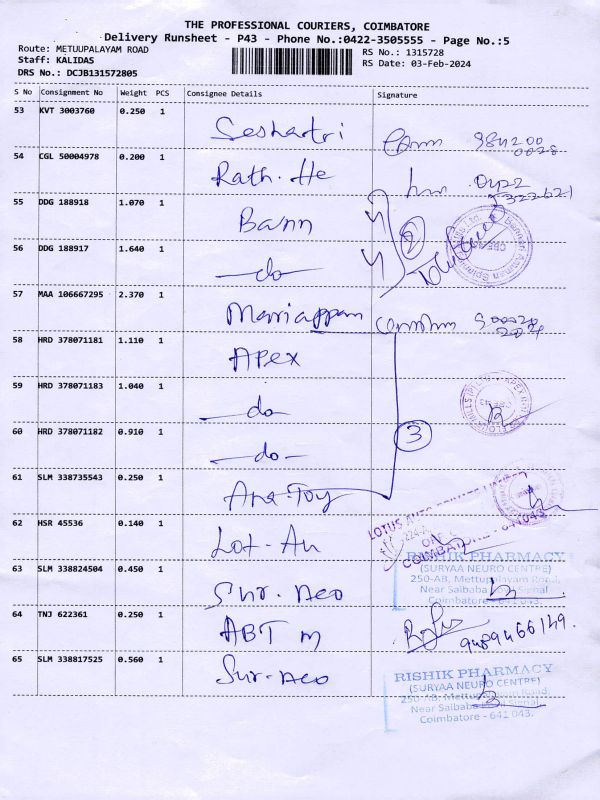 THE PROFESSIONAL COURIERS, COIMBATORE
Delivery Runsheet - P43 - Phone No.:0422-3505555 - Page No.:5
Route: METUUPALAYAM ROAD
RS No.: 1315728
Staff: KALIDAS
RS Date: 03-Feb-2024
DRS No.: DCJB131572805
S No Consignment No Weight PCS Consignee Details Signature
53 KVT 3003760 0.250 1 Seshartri
54 CGL 50004978 0.200 1 Rath. He 0422
55 DDG 188918 1.070 1 Bann
56 DDG 188917 1.640 1 —do 2
57 MAA 106667295 2.370 1 Marriappan
58 HRD 378071181 1.110 1 Apex
59 HRD 378071183 1.040 1 —do
60 HRD 378071182 0.910 1 —do- 3
61 SLM 338735543 0.250 1 Ana-Toy
LOTUS
COIMBATORE - 641043
62 HSR 45536 0.140 1 Lot-Au
RISHIK PHARMACY
(SURYAA NEURO CENTRE)
250-AB, Mettupalayam Road,
Near Saibaba Signal
Coimbatore - 641 043.
63 SLM 338824504 0.450 1 Sur. neo
64 TNJ 622361 0.250 1 ABT m 9489466149.
65 SLM 338817525 0.560 1 Sur-neo
RISHIK PHARMACY
(SURYAA NEURO CENTRE)
250-AB, Mettupalayam Road,
Near Saibaba Signal
Coimbatore - 641 043.